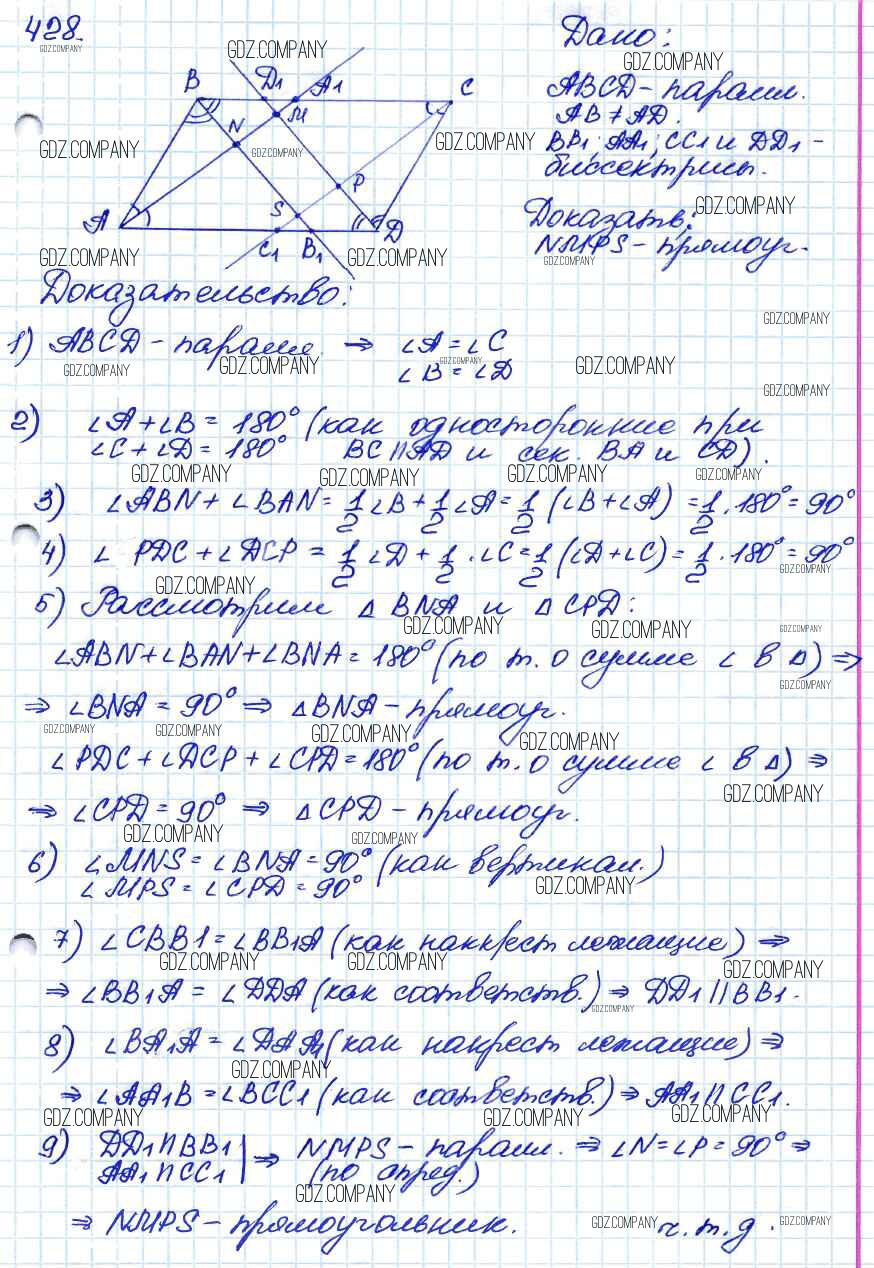 428.
Дано:
ABCD - паралл.
AB ≠ AD.
BB1; AA1; CC1 и DD1 -
биссектрисы.
Доказать:
NMPS - прямоуг.
B D1 A1 C
M
N
P
S
A C1 B1 D
Доказательство:
1) ABCD - паралл. ⇒ ∠A = ∠C
∠B = ∠D
2) ∠A + ∠B = 180° (как односторонние при
∠C + ∠D = 180° BC || AD и сек. BA и CD).
3) ∠ABN + ∠BAN = 1/2 ∠B + 1/2 ∠A = 1/2 (∠B + ∠A) = 1/2 · 180° = 90°
4) ∠ PDC + ∠DCP = 1/2 ∠D + 1/2 · ∠C = 1/2 (∠D + ∠C) = 1/2 · 180° = 90°
5) Рассмотрим △ BNA и △ CPD:
∠ABN + ∠BAN + ∠BNA = 180° (по т. о сумме ∠ в △) ⇒
⇒ ∠BNA = 90° ⇒ △BNA - прямоуг.
∠PDC + ∠DCP + ∠CPD = 180° (по т. о сумме ∠ в △) ⇒
⇒ ∠CPD = 90° ⇒ △CPD - прямоуг.
6) ∠MNS = ∠BNA = 90° (как вертикал.)
∠MPS = ∠CPD = 90°
7) ∠CBB1 = ∠BB1A (как накрест лежащие) ⇒
⇒ ∠BB1A = ∠DDA (как соответств.) ⇒ DD1 || BB1.
8) ∠BA1A = ∠DAA1 (как накрест лежащие) ⇒
⇒ ∠AA1B = ∠BCC1 (как соответств.) ⇒ AA1 || CC1.
9) DD1 || BB1 | ⇒ NMPS - паралл. ⇒ ∠N = ∠P = 90° ⇒
AA1 || CC1 | (по опред.)
⇒ NMPS - прямоугольник. ч.т.д.
GDZ.COMPANY